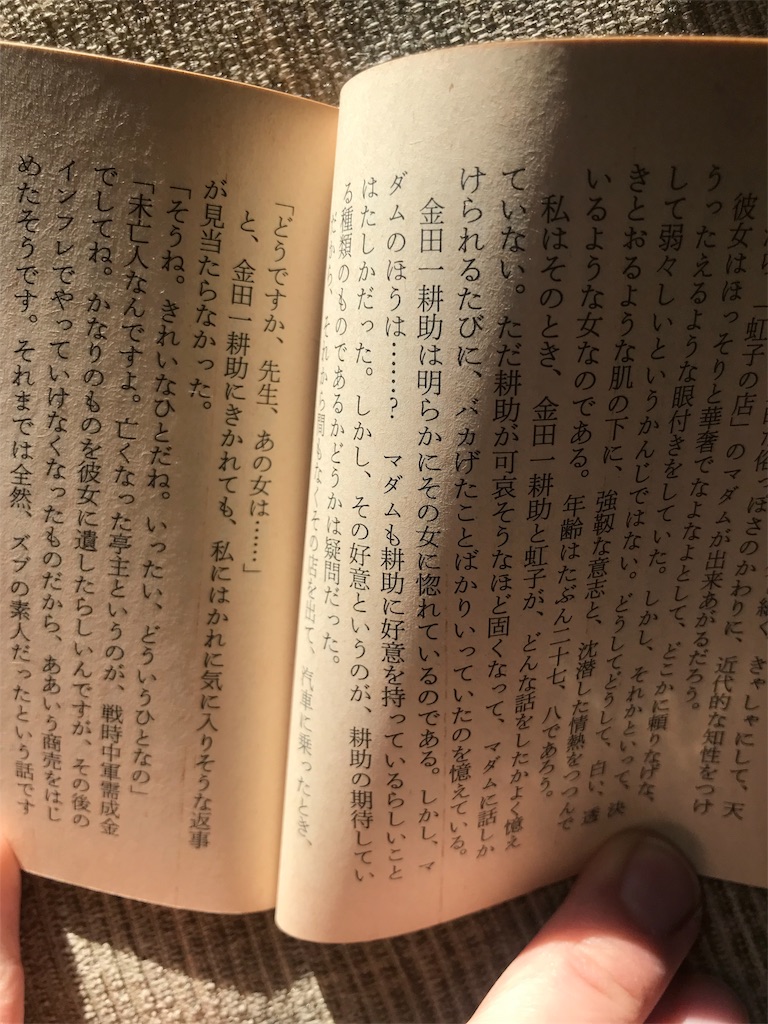 「虹子の店」のマダムが出来あがるだろう。
彼女はほっそりと華奢でなよなよとして、どこかに頼りなげな、
うったえるような眼付きをしていた。しかし、それかといって、決
して弱々しいというかんじではない。どうしてどうして、白い、透
きとおるような肌の下に、強靱な意志と、沈潜した情熱をつつんで
いるような女なのである。年齢はたぶん二十七、八であろう。
私はそのとき、金田一耕助と虹子が、どんな話をしたかよく憶え
ていない。ただ耕助が可哀そうなほど固くなって、マダムに話しか
けられるたびに、バカげたことばかりいっていたのを憶えている。
金田一耕助は明らかにその女に惚れているのである。しかし、マ
ダムのほうは……？　マダムも耕助に好意を持っているらしいこと
はたしかだった。しかし、その好意というのが、耕助の期待してい
る種類のものであるかどうかは疑問だった。
だから、それから間もなくその店を出て、汽車に乗ったとき、
「どうですか、先生、あの女は……」
と、金田一耕助にきかれても、私にはかれに気に入りそうな返事
が見当たらなかった。
「そうね。きれいなひとだね。いったい、どういうひとなの」
「未亡人なんですよ。亡くなった亭主というのが、戦時中軍需成金
でしてね。かなりのものを彼女に遺したらしいんですが、その後の
インフレでやっていけなくなったものだから、ああいう商売をはじ
めたそうです。それまでは全然、ズブの素人だったという話です